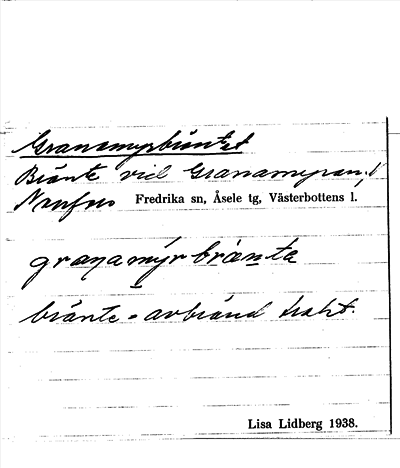 Granamyrbräntet
Bränte vid Granamyran,
Fredrika sn, Åsele tg, Västerbottens l.
granamyrbrænta
bränte = avbränd trakt.
Lisa Lidberg 1938.